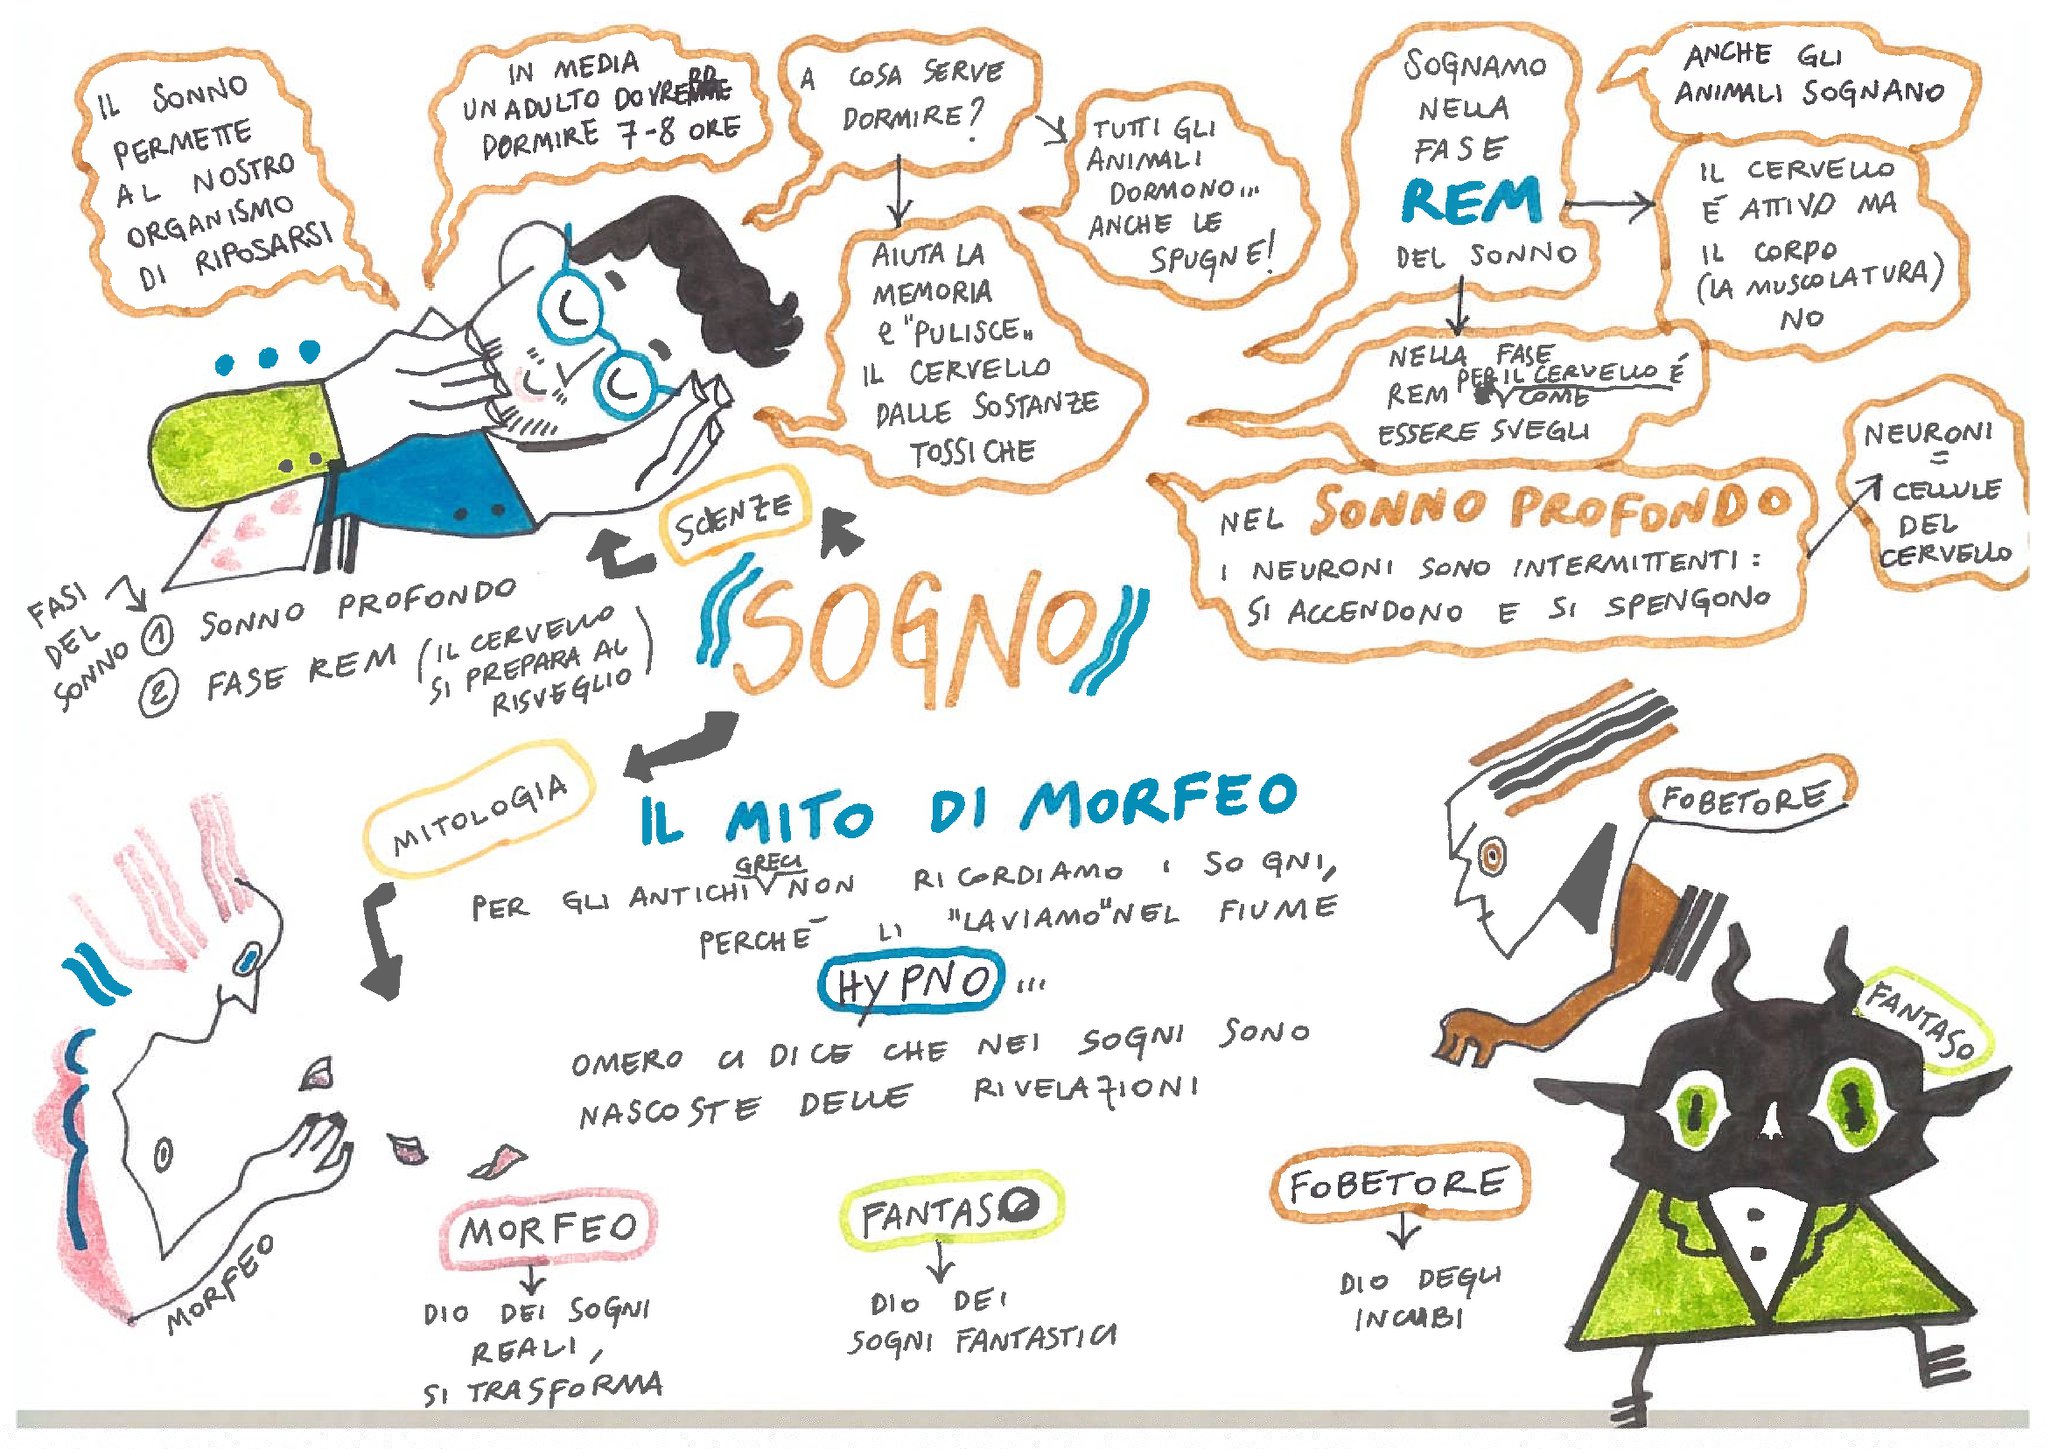 IL SONNO
PERMETTE
AL NOSTRO
ORGANISMO
DI RIPOSARSI
IN MEDIA
UN ADULTO DOVREBBE
DORMIRE 7-8 ORE
A COSA SERVE
DORMIRE?
TUTTI GLI
ANIMALI
DORMONO...
ANCHE LE
SPUGNE!
AIUTA LA
MEMORIA
e "PULISCE"
IL CERVELLO
DALLE SOSTANZE
TOSSICHE
SOGNAMO
NELLA
FASE
REM
DEL SONNO
ANCHE GLI
ANIMALI SOGNANO
IL CERVELLO
É ATTIVO MA
IL CORPO
(LA MUSCOLATURA)
NO
NELLA FASE
REM PER IL CERVELLO É COME
ESSERE SVEGLI
NEL SONNO PROFONDO
I NEURONI SONO INTERMITTENTI:
SI ACCENDONO E SI SPENGONO
NEURONI
=
CELLULE
DEL
CERVELLO
SCIENZE
FASI
DEL
SONNO
1 SONNO PROFONDO
2 FASE REM (IL CERVELLO
SI PREPARA AL
RISVEGLIO)
SOGNO
MITOLOGIA
IL MITO DI MORFEO
PER GLI ANTICHI GRECI NON RICORDIAMO I SOGNI,
PERCHÉ LI "LAVIAMO" NEL FIUME
HYPNO...
OMERO CI DICE CHE NEI SOGNI SONO
NASCOSTE DELLE RIVELAZIONI
FOBETORE
FANTASO
MORFEO
MORFEO
DIO DEI SOGNI
REALI,
SI TRASFORMA
FANTASO
DIO DEI
SOGNI FANTASTICI
FOBETORE
DIO DEGLI
INCUBI